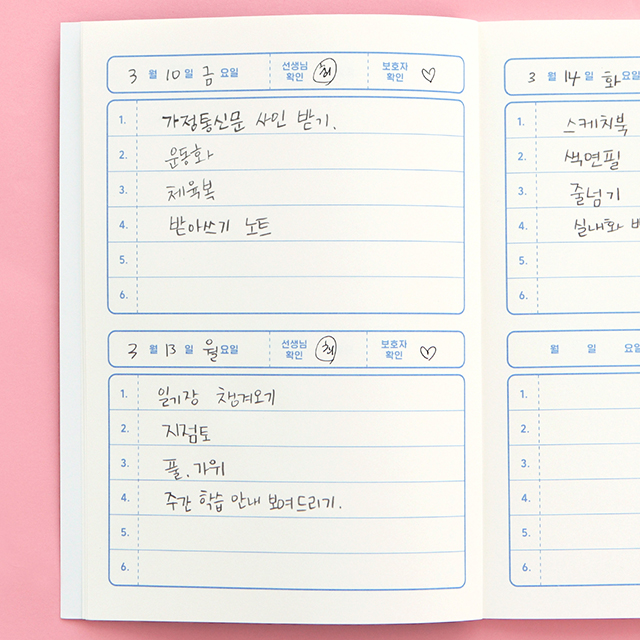 3 월 10 일 금 요일 선생님 확인 최 보호자 확인 ♡
1. 가정통신문 사인 받기.
2. 운동화
3. 체육복
4. 받아쓰기 노트
5.
6.
3 월 13 일 월 요일 선생님 확인 최 보호자 확인 ♡
1. 일기장 챙겨오기
2. 지점토
3. 풀, 가위
4. 주간 학습 안내 보여드리기.
5.
6.
3 월 14 일 화 요일
1. 스케치북
2. 색연필
3. 줄넘기
4. 실내화
5.
6.
월 일 요일
1.
2.
3.
4.
5.
6.